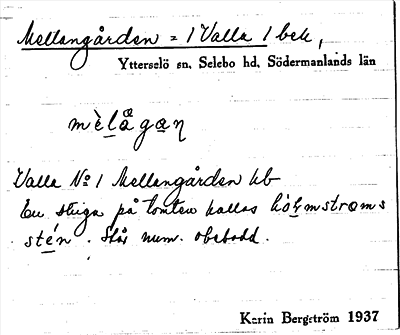 Mellangården = 1 Valla 1 bek,
Ytterselö sn. Selebo hd. Södermanlands län
mèlågan
Valla № 1 Mellangården hb
En stuga på tomten kallas hólmstroms
stén. Står num. obebodd.
Karin Bergström 1937